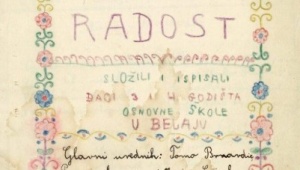 RADOST
SLOŽILI I ISPISALI
ĐACI 3 I 4 GODIŠTA
OSNOVNE ŠKOLE
U BELAJU
Glavni urednik: Tomo